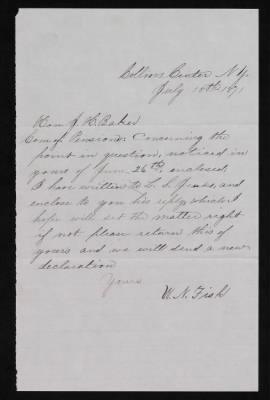 Collins Center N.Y.
July 10th 1871
Hon J. H. Baker
Com of Pensions. Concerning the
point in question, noticed in
yours of June 26th, enclosed.
I have written to L. L. and
enclose to you his reply which I
hope will set the matter right
if not please return this of
yours and we will send a new
declaration
Yours
W. N. Fisk